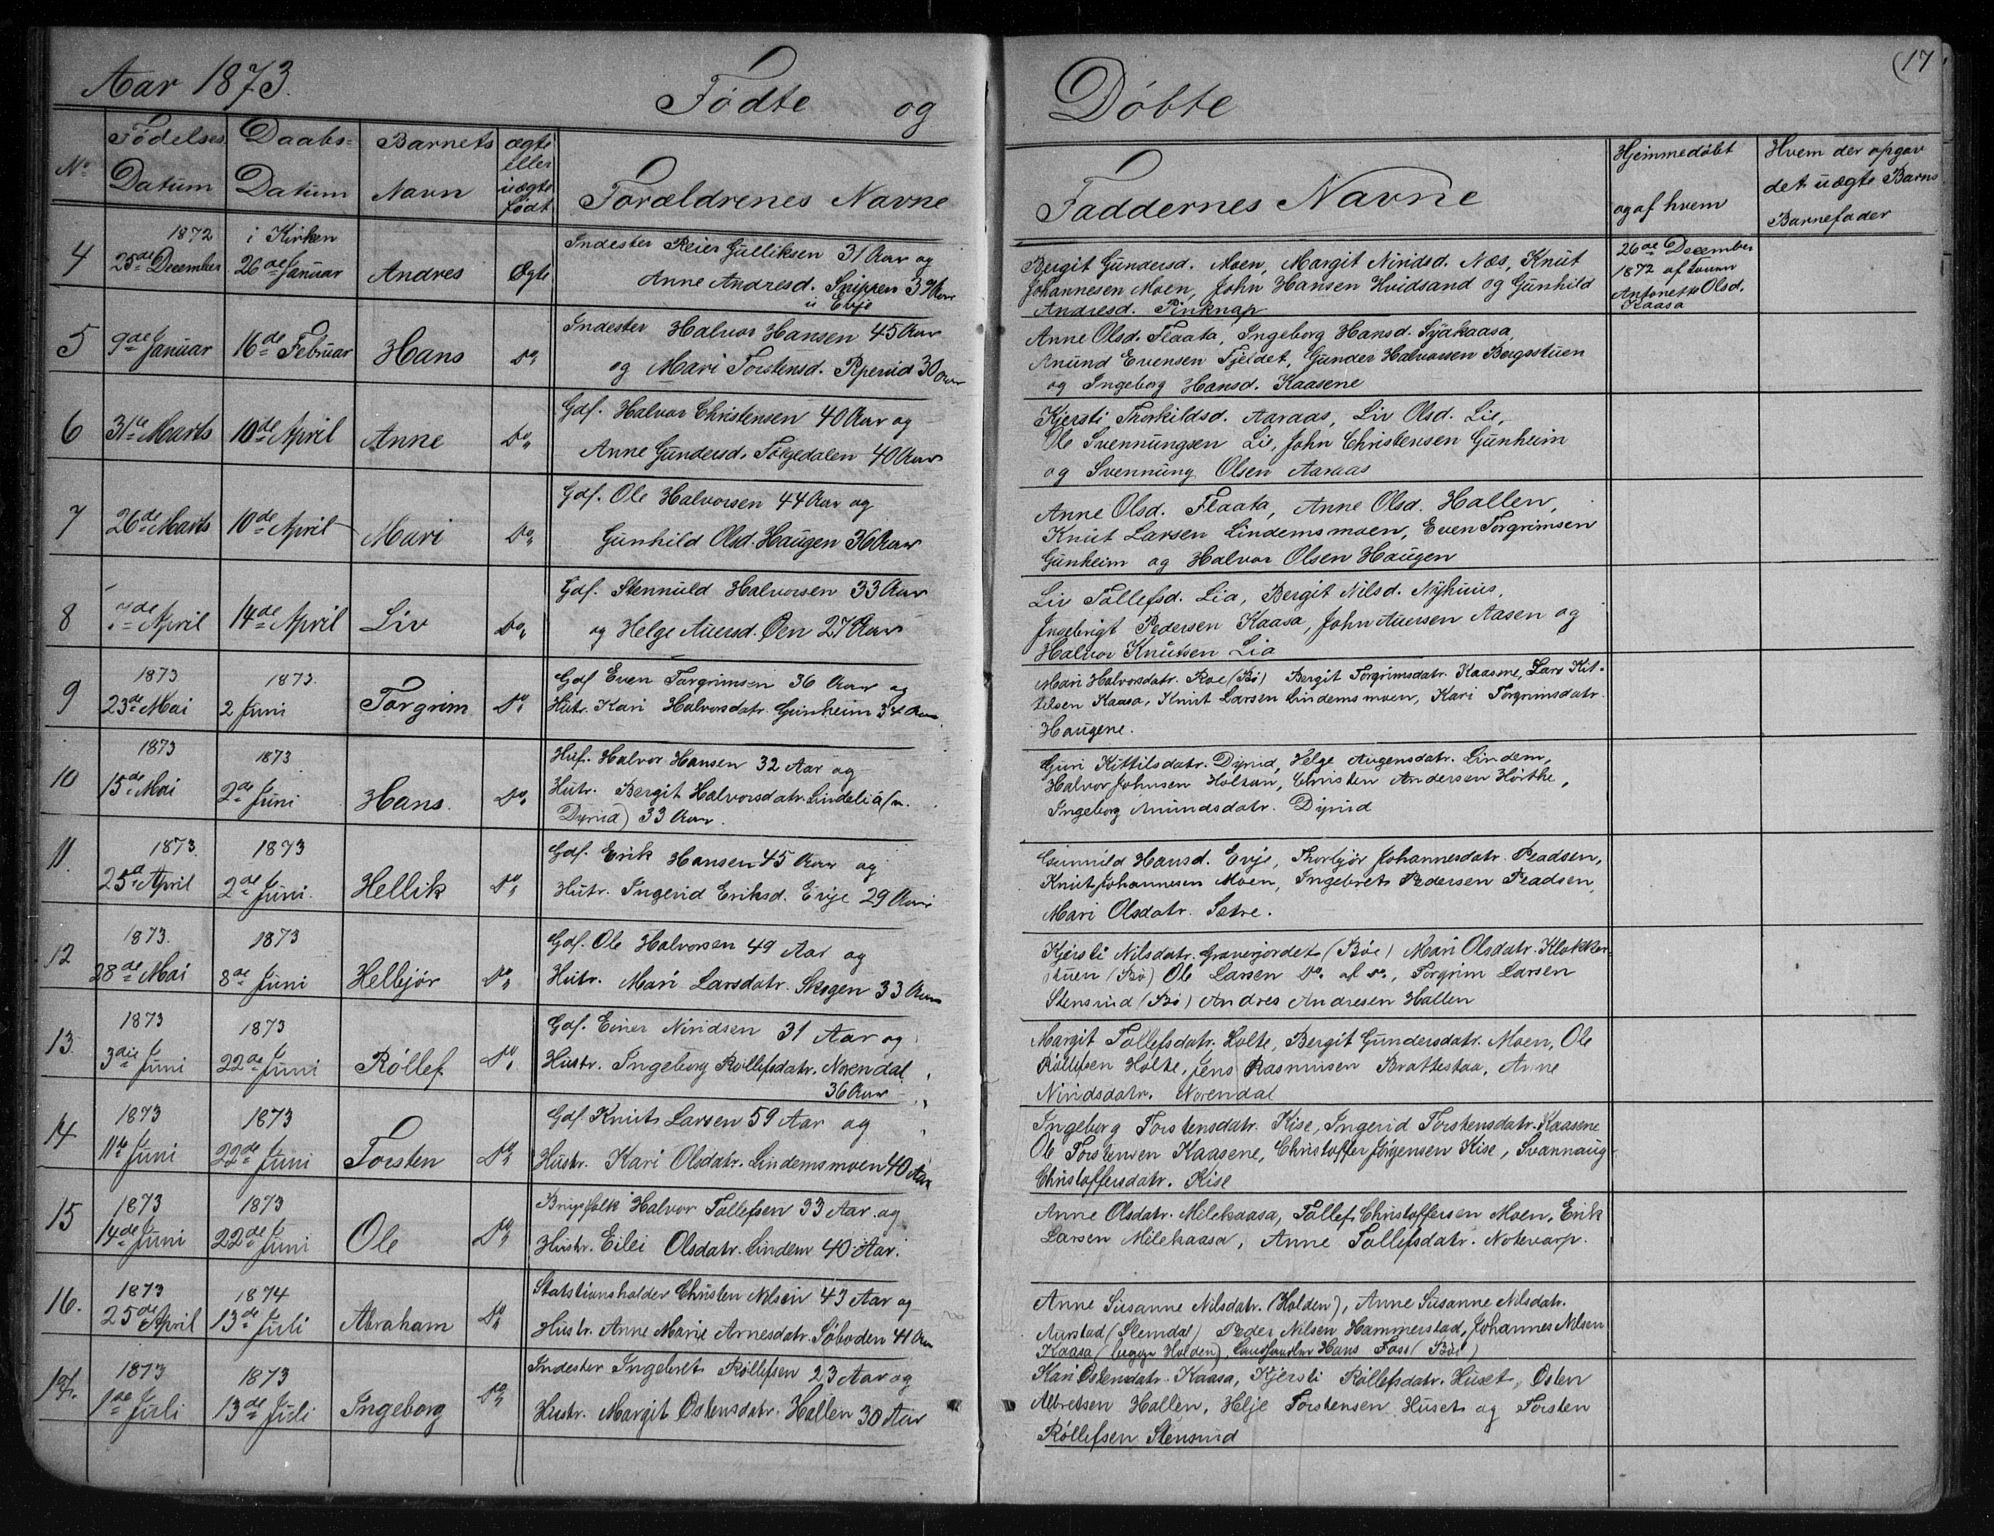 Aar 1873.
Fødte og
Døbte
17
No
Fødelses
Datum
Daabs-
Datum
Barnets
Navn
ægte
eller
uægte
født
Forældrenes Navne
Faddernes Navne
Hjemmedøbt
og af hvem
Hvem der opgav
det uægte Barns
Barnefader
4
1872
25de December
i Kirken
26de Januar
Andres
Ægte
Indester Reier Gulliksen 31 Aar og
Anne Andresd. Snippen 39 Aar
i Evje
Bergit Gundersd. Moen, Margit Niridsd. Næs, Knut
Johannesen Moen, John Hansen Hvidsand og Gunhild
Andresd. Pinknap
26de December
1872 af
Antonette Olsd.
Kaasa
5
9de Januar
16de Februar
Hans
Do
Indester Halvor Hansen 45 Aar
og Mari Torstensd. Roperud 30 Aar
Anne Olsd. Flaata, Ingeborg Hansd. Syakaasa,
Anund Evensen Fjeldet, Gunder Halvorsen Bergsstuen
og Ingeborg Hansd. Kaasene
6
31te Marts
10de April
Anne
Do
Gdf. Halvor Christensen 40 Aar og
Anne Gundersd. Følgedalen 40 Aar
Kjersti Thorkildsd. Aaraas, Liv Olsd. Lie,
Ole Svennungsen Lie, John Christensen Gunheim
og Svennung Olsen Aaraas
7
26de Marts
10de April
Mari
Do
Gdf. Ole Halvorsen 44 Aar og
Gunhild Olsd. Haugen 36 Aar
Anne Olsd. Flaata, Anne Olsd. Hallen,
Knut Larsen Lindemsmoen, Even Torgrimsen
Gunheim og Halvor Olsen Haugen
8
7de April
14de April
Liv
Do
Gdf. Stennuld Halvorsen 33 Aar
og Helge Auersd. Øen 27 Aar
Liv Tollefsd. Lia, Bergit Nilsd. Nyhuus,
Ingebrigt Pedersen Kaasa, John Auersen Aasen og
Halvor Knutsen Lia
9
1873
23de Mai
1873.
2 Juni
Torgrim
Do
Gdf Even Torgrimsen 36 Aar og
Hutr. Kari Halvorsdatr. Gunheim 34 Aar
Mari Halvorsdatr. Roe (Bø) Bergit Torgrimsdatr. Kaasene, Lars Kit-
tilsen Kaasa, Knut Larsen Lindemsmoen, Kari Torgrimsdatr.
Haugene.
10
1873
15de Mai
1873
2de Juni
Hans.
Do
Huf. Halvor Hansen 32 Aar og
Hutr. Bergit Halvorsdatr. Lindelia (n.
Dyrud) 33 Aar.
Guri Kittilsdatr. Dyrud, Helge Augensdatr. Lindem,
Halvor Johnsen Holtan, Christen Andersen Hørthe,
Ingeborg Anundsdatr. Dyrud
11.
1873.
25de April
1873
2de Juni.
Hellik
Do
Gdf. Erik Hansen 45 Aar og
Hutr. Ingerid Eriksd. Evje 29 Aar
Gunnild Hansd. Evje, Thorbjør Johannesdatr. Pladsen,
Knut Johannesen Moen, Ingebret Pedersen Pladsen,
Mari Olsdatr. Sætre.
12
1873.
28de Mai
1873
8de Juni
Helbjør
Do
Gdf. Ole Halvorsen 49 Aar og
Hutr. Mari Larsdatr. Skogen 33 Aar
Kjersti Nilsdatr. Gravерjordet (Bøe) Mari Olsdatr. Klokker-
stuen (Bø) Ole Larsen do. af do., Torgrim Larsen
Stensrud (Bø) Andres Andresen Hallen
13.
1873
3die Juni
1873
22de Juni
Røllef
Do
Gdf. Einer Niridsen 31 Aar og
Hustr. Ingeborg Røllefsdatr. Norendal
36 Aar
Margit Tollefsdatr. Holte, Bergit Gundersdatr. Moen, Ole
Røllefsen Holte, Jens Rasmusen Brattestaa, Anne
Niridsdatr. Norendal
14
1873
11te Juni
1873
22de Juni
Torsten
Do
Gdf. Knut Larsen 59 Aar og
Hustr. Kari Olsdatr. Lindemsmoen 40 Aar
Ingeborg Torstensdatr. Kise, Ingerid Torstensdatr. Kaasene
Ole Torstensen Kaasene, Christoffer Jørgensen Kise, Svannaug
Christoffersdatr. Kise
15
1873
14de Juni
1873
22de Juni
Ole
Do
Brugsfolk Halvor Tollefsen 33 Aar og
Hustr. Eilei Olsdatr. Lindem 40 Aar.
Anne Olsdatr. Milekaasa, Tollef Christoffersen Moen, Erik
Larsen Milekaasa, Anne Tollefsdatr. Notevarp.
16.
1873
25de April
1874
13de Juli
Abraham
Do
Statstionsholder Christen Nilsen 43 Aar og
Hustr. Anne Marie Arnesdatr. Søboden 41 Aar
Anne Susanne Nilsdatr. (Holden), Anne Susanne Nilsdatr.
Aurstad (Slemdal) Peder Nilsen Hammerstad, Johannes Nilsen
Kaasa (begge Holden), Landhandler Hans Foss (Bøe)
17.
1873
1de Juli
1873
13de Juli
Ingeborg
Do
Indester Ingebret Røllefsen 23 Aar og
Hustr. Margit Østensdatr. Hallen 30 Aar
Kari Østensdatr. Kaasa, Kjersti Røllefsdatr. Huset, Østen
Albretsen Hallen, Helje Torstensen Huset og Torsten
Røllefsen Stensrud